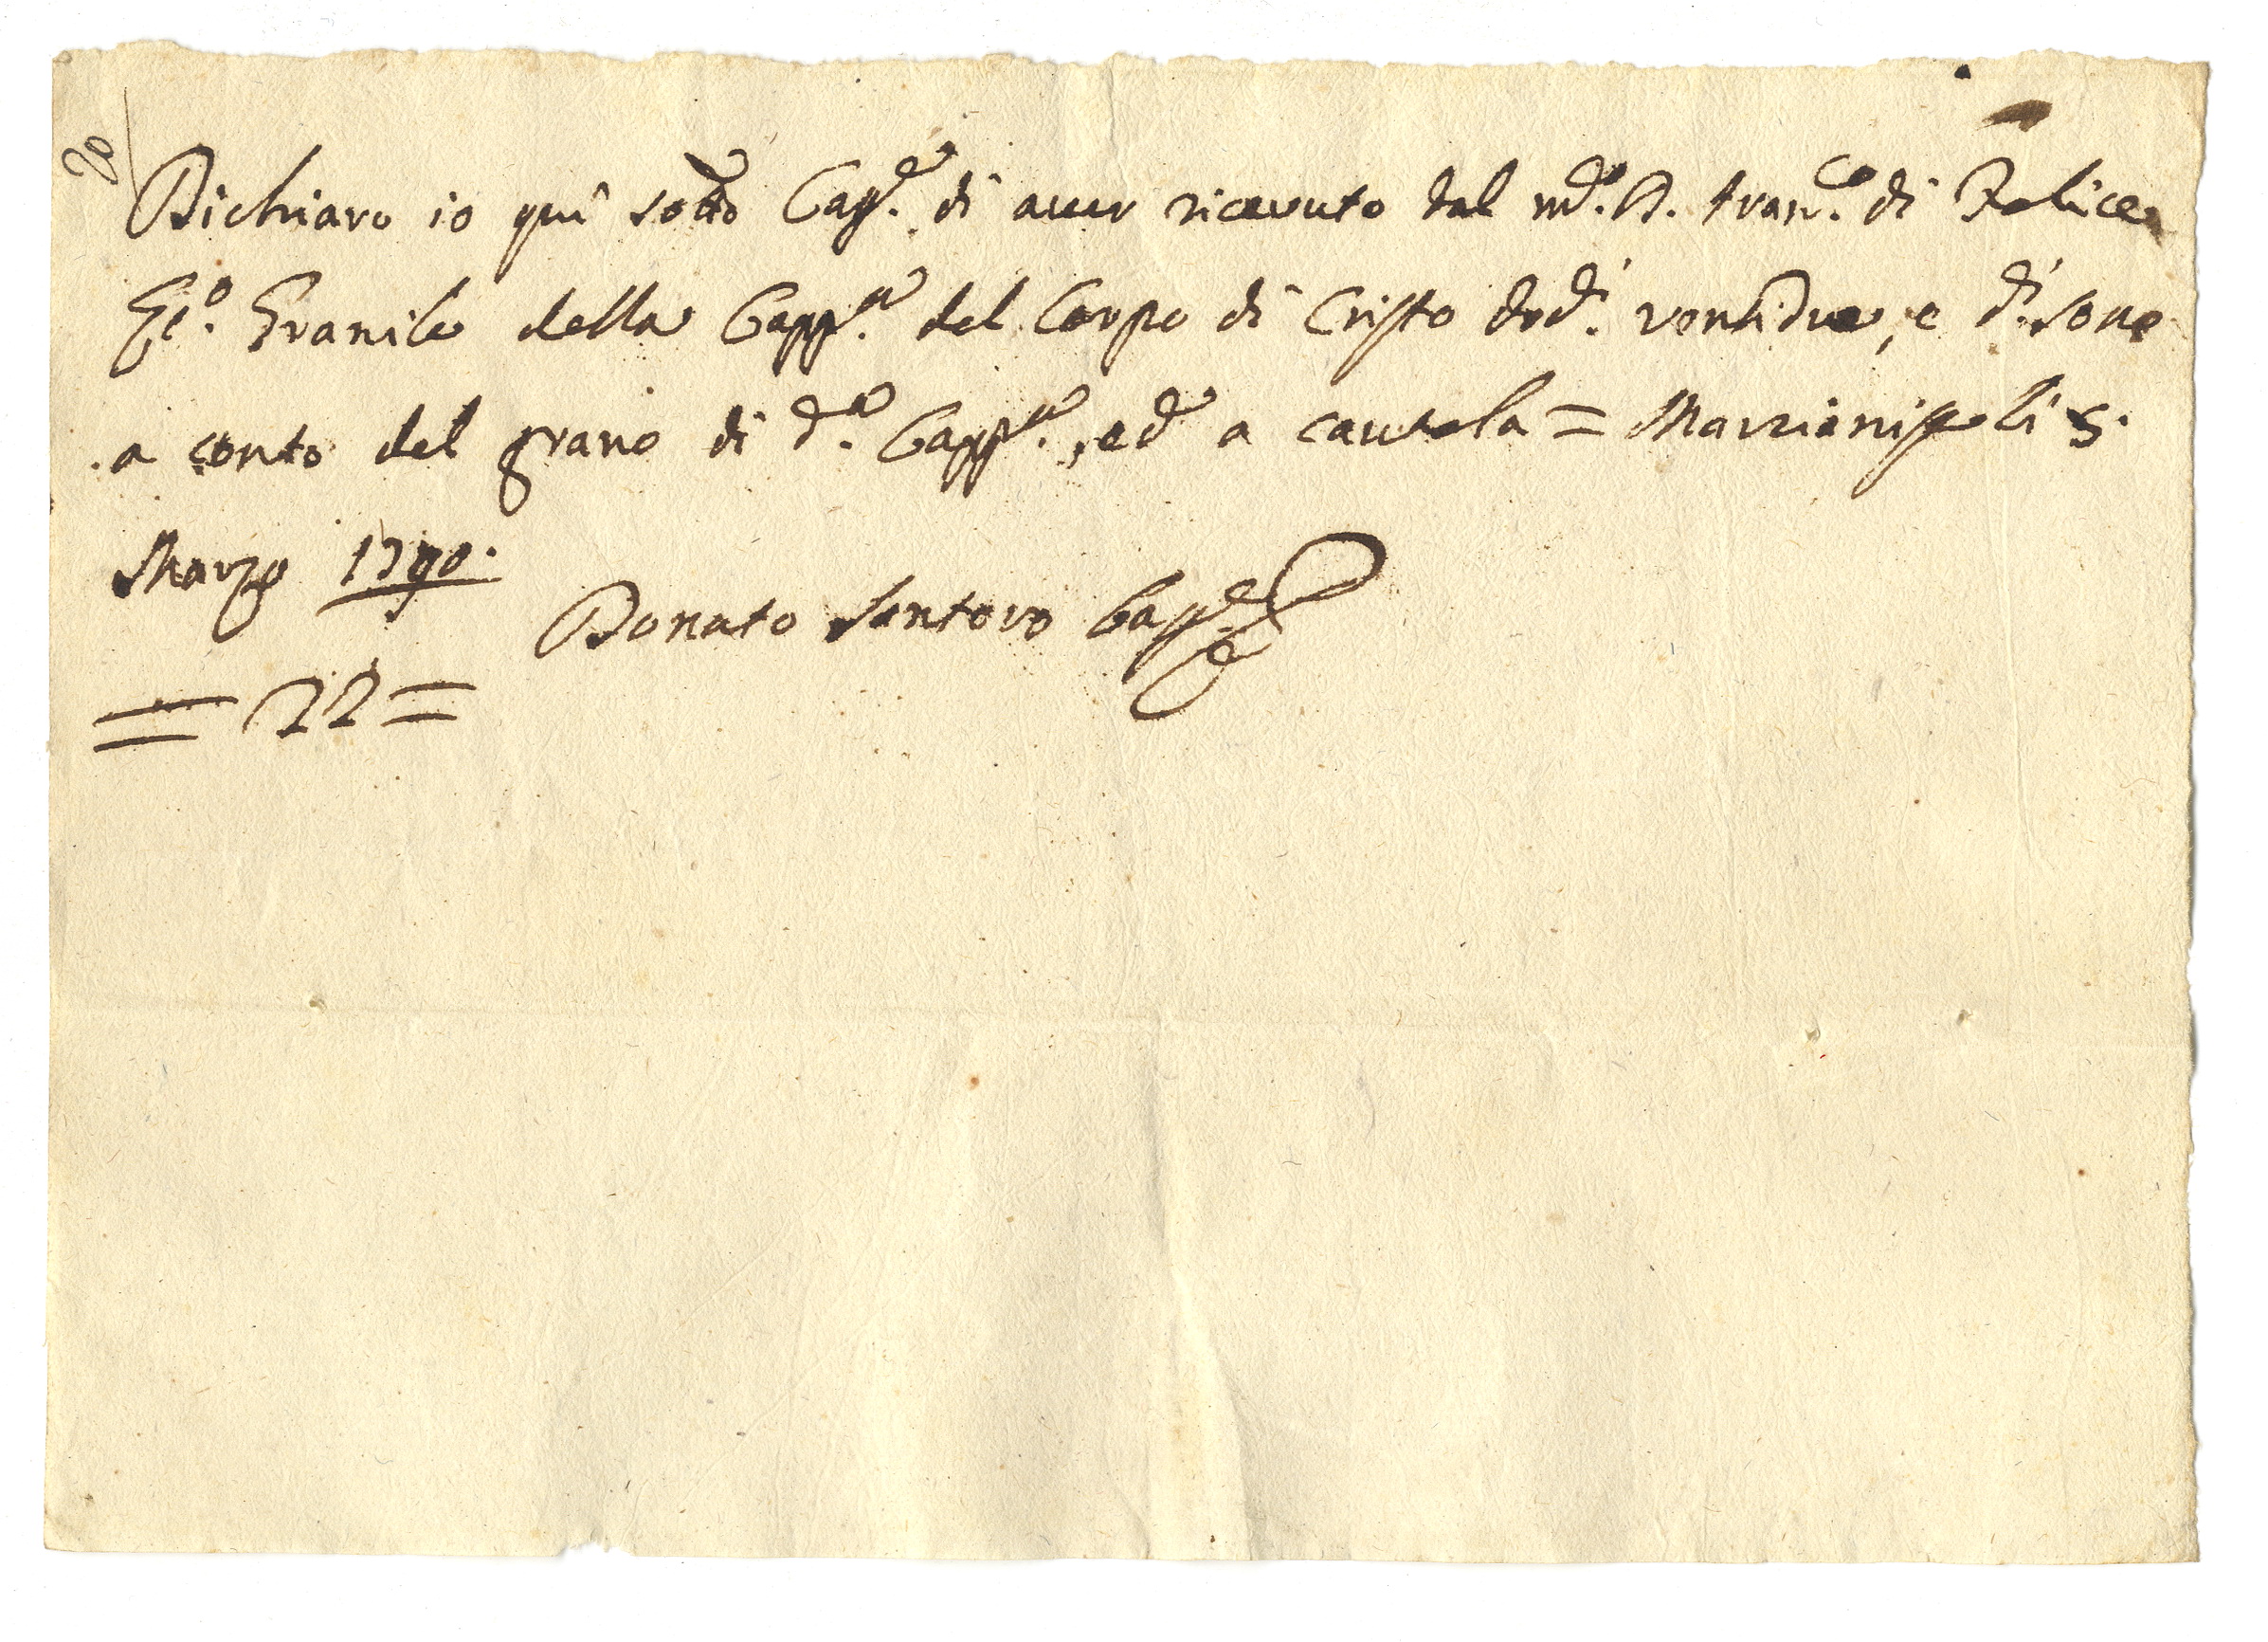 20
Dichiaro io quì sotto Capp.e di aver ricevuto dal md.o D. Fran.co di Felice
Ec.o Granile della Capp.a del Corpo di Cristo dod.i ventidue, e d.i sono
a conto del grano di d.a Capp.a, ed a cautela = Marzianipoli 5.
Marzo 1790.
Donato Santoro Capp.e
= 22 =